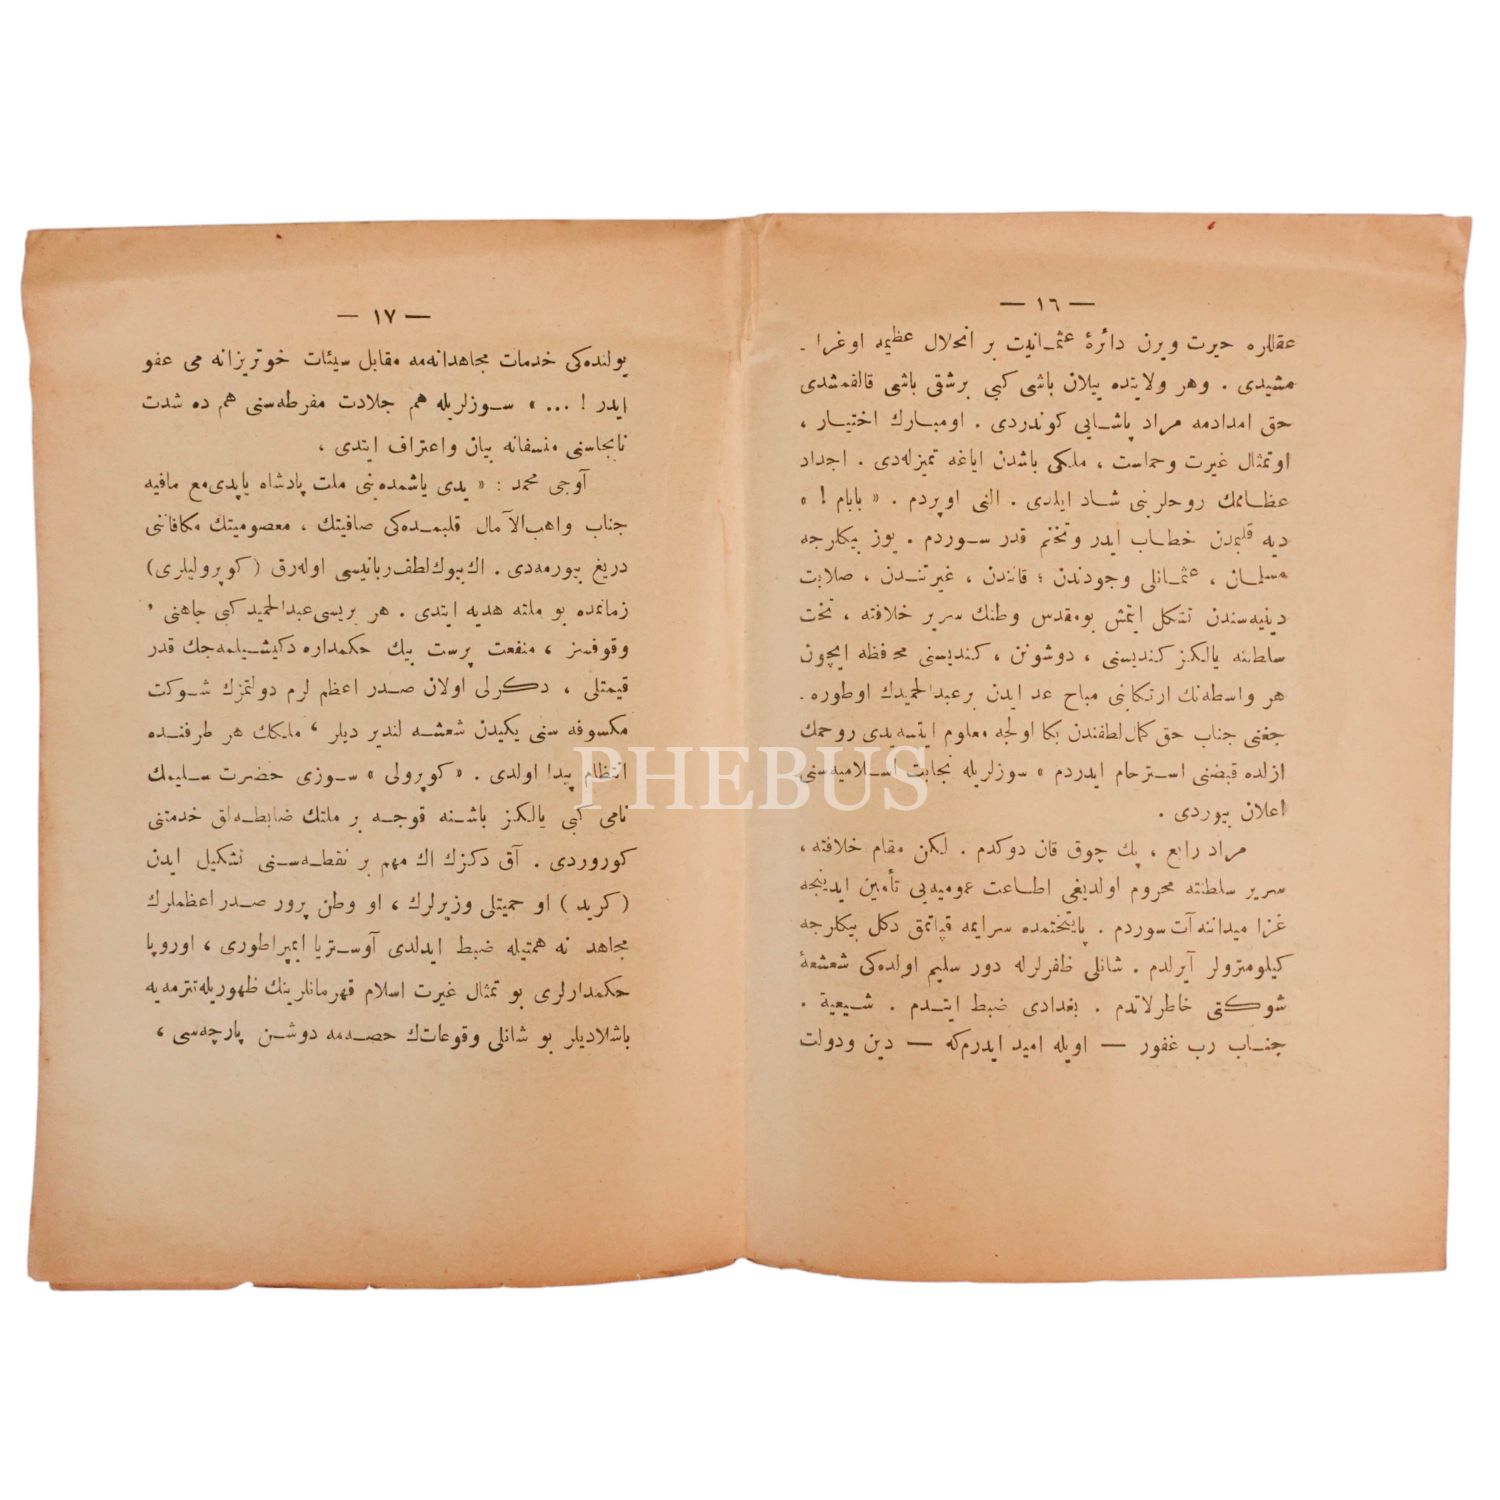 — ١٦ —
عقللره حيرت ويرن دائرهٔ عثمـانيت بر انحلال عظيمه اوغرا .
مشيدى . وهر ولايتده ييلان باشى كبى برشقى باشى قالقمشدى
حق امدادمه مراد پاشـايى كوندردى . اومبـارك اختيـار ،
اوتمثال غيرت وحماست ، ملكمى باشدن اياغه تميزله‌دى . اجداد
عظـامڭ روحلرينى شـاد ايلدى . النى اوپردم . « بابام ! »
ديه قلبمدن خطـاب ايدر وتختم قدر سـوردم . يوز بيكلرجه
مسلمـان ، عثمـانلى وجودندن ؛ قانندن ، غيرتنـدن ، صلابت
دينيه‌سندن تشكل ايتمش بومقدس وطنك سرير خلافته ، تخت
سلطنته يالكز كنديسنى ، دوشونن ، كنديسنى محافظه ايچون
هر واسطه‌نك ارتكابنى مباح عد ايدن برعبدالحميدك اوطوره .
جغنى جناب حق كمال لطفندن بكا اولجه معلوم ايتسه‌يدى روحمك
ازلده قبضنى استرحام ايدردم » سوزلريله نجابت اسـلاميه‌سنى
اعلان بيوردى .
مراد رابع ، پك چوق قان دوكدم . لكن مقام خلافته ،
سرير سلطنته محروم اولديغى اطـاعت عموميه‌يى تأمين ايدينجه
غزا ميداننه آت سوردم . پايتختمده سرايمه قپانمق دكل بيكلرجه
كيلومترولر آيرلدم . شانلى ظفرلرله دور سليم اولده‌كى شعشعهٔ
شوكتى خاطرلاتدم . بغدادى ضبط ايتـدم . شـيعية .
جنـاب رب غفور — اويله اميد ايدرم‌كه — دين ودولت
— ١٧ —
يولنده‌كى خدمات مجاهدانه‌مه مقابل سيئات خونريزانه مى عفو
ايدر ! ... » سـوزلريله هم جلادت مفرطه‌سنى هم ده شدت
نابجاسنى متأسفانه بيان واعتراف ايتدى ،
آوجى محمد : « يدى ياشمده‌بنى ملت پادشاه ياپدى‌مع مافيه
جناب واهب‌الآمال قلبمـده‌كى صافيتك ، معصوميتك مكافاتنى
دريغ بيورمه‌دى . اك‌بيوك‌لطف‌ربانيسى اوله‌رق (كوپروليلرى)
زمانمده بو ملته هديه ايتدى . هر بريسى‌عبدالحميد كبى جاهنى ،
وقوفسز ، منفعت پرست بيك حكمداره دكيشـيلمه‌جك قدر
قيمتلى ، دكرلى اولان صـدر اعظم لرم دولتمزك شـوكت
مكسوفه سنى يكيدن شعشـه لندير ديلر ، ملكك هر طرفنـده
انتظام پيدا اولدى . « كوپرولى » سـوزى حضرت سـليمك
نامى كبى يالكز باشـنه قوجـه بر ملتك ضابطـه‌لق خدمتنى
كوروردى . آق دكزك اك مهم بر نقطـه‌سـنى تشكيل ايدن
(كريد) او حميتلى وزيرلرك ، او وطن پرور صـدر اعظملرك
مجاهد نه همتيله ضبط ايدلدى آوسـتريا ايمپراطورى ، اوروپا
حكمدارلرى بو تمثال غيرت اسلام قهرمانلرينك ظهوريله‌تترمه‌يه
باشلاديلر بو شانلى وقوعاتك حصـه‌مه دوشـن پارچه‌سى ،
PHEBUS